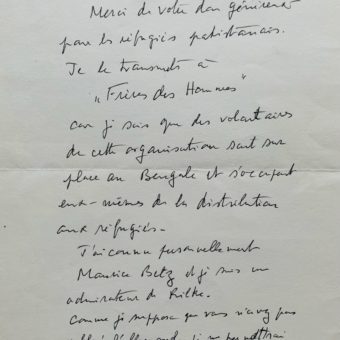 Merci de votre don généreux
pour les réfugiés pakistanais.
Je le transmets à
"Frères des Hommes"
car je sais que des volontaires
de cette organisation sont sur
place au Bengale et s'occupent
eux-mêmes de la distribution
aux réfugiés.
J'ai connu personnellement
Maurice Betz et je suis un
admirateur de Rilke.
Comme je suppose que vous n'avez pas